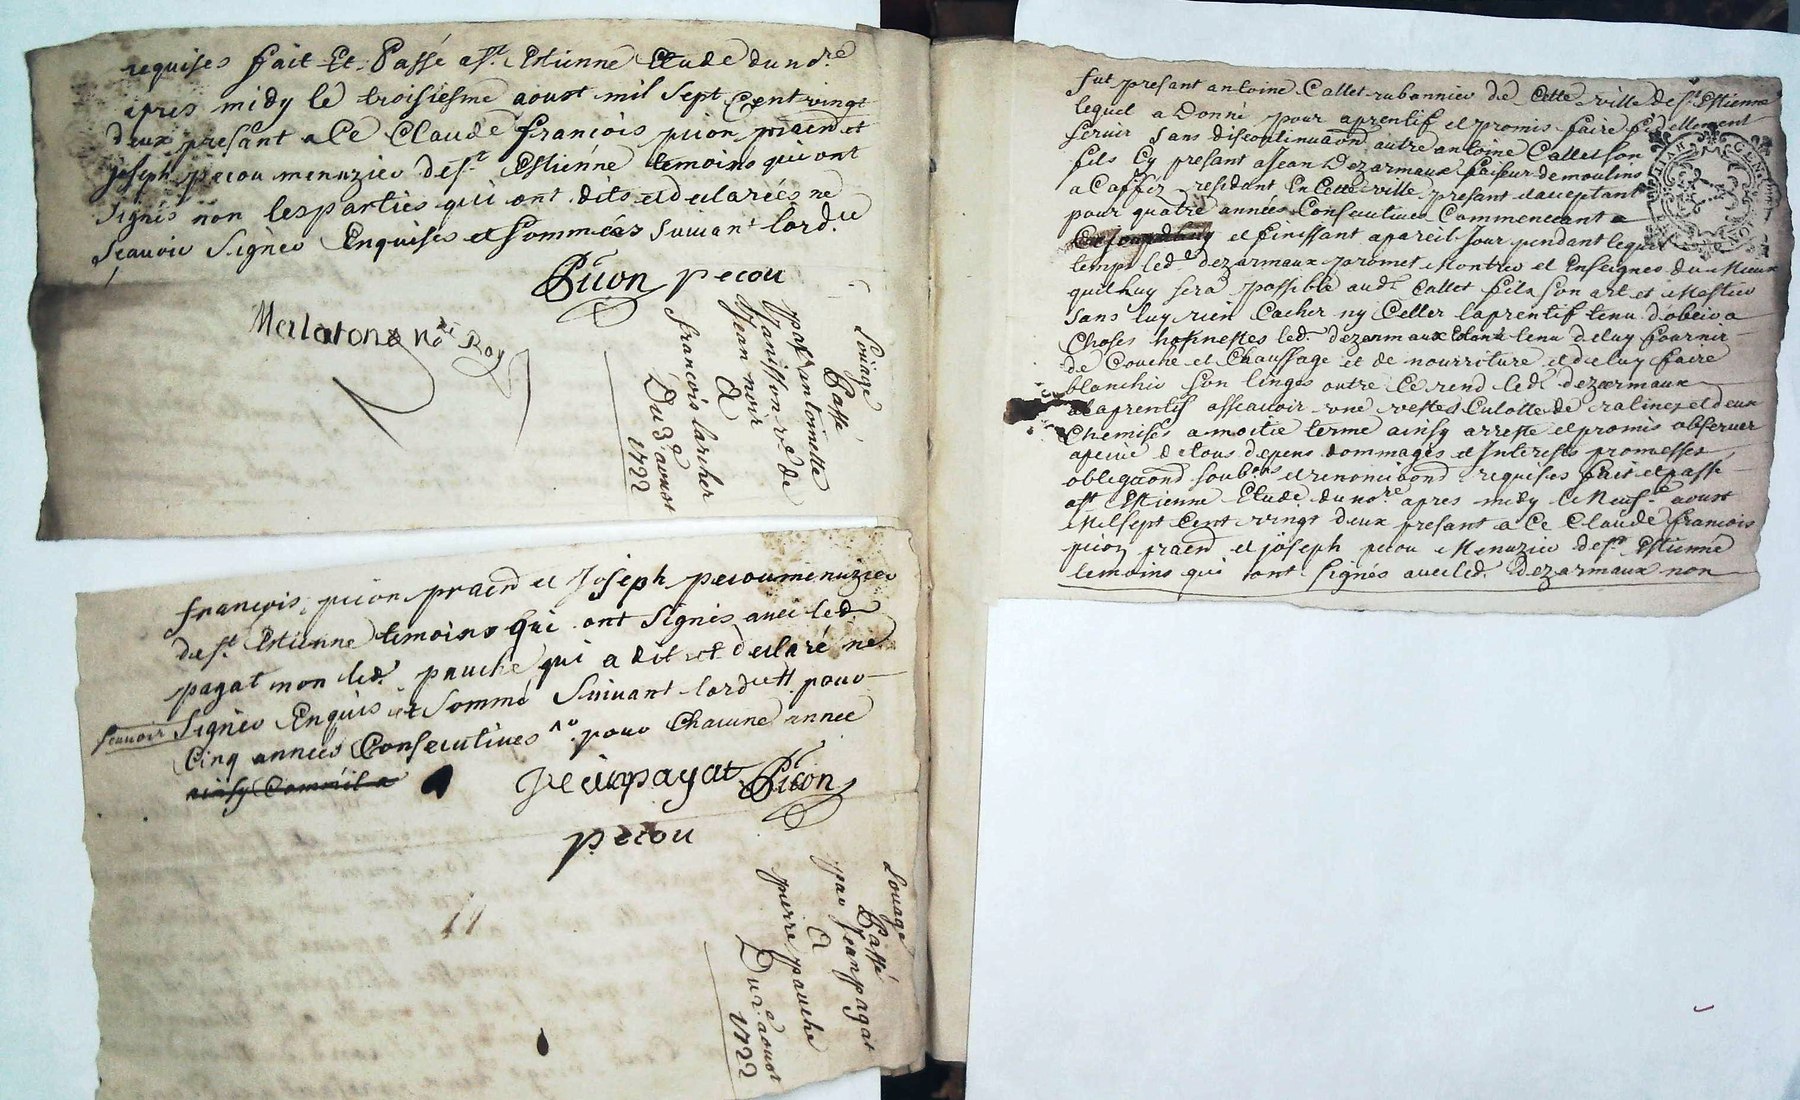 requises fait Et Passé a st. Estienne Etude du no.re
apres midy le troisiesme aoust mil sept Cent vingt
deux presant a Ce Claude françois picon praticn et
joseph pecou menuzier de st. Estienne temoins qui ont
signés non les parties qui ont dits et declarées ne
scauoir signer Enquises et sommées suivant lord.ce
Picon pecou
Malaton No.re Roy
Louage
Passé
par antoinette
janisson v.e de
jean noir
A
françois larcher
Du 3.e aoust
1722
françois picon praticn et Joseph pecou menuzier
de st. Estienne temoins qui ont signés avec led.
pagat non led. pauche qui a dit et declaré ne
scauoir signer Enquis et sommé suivant lord.ce pour
Cinq années Consecutives pour Chacune année
ainsy Comme il a
Jean pagat Picon
pecou
Louage
Passé
par jean pagat
A
pierre pauche
Du 2.e aoust
1722
fut presant antoine Callet rubannier de Cette ville de st. Estienne
lequel a Donné pour aprentif et promis faire fidellement
seruir sans discontinuaon autre antoine Callet son
fils Cy presant a Jean Dezarmaux faiseur de moulins
a Caffez residant En Cette ville presant et acceptant
pour quatre années Consecutives Commencant a
et finissant a pareil Jour pendant lequel
temps led. dezarmaux promet Montrer et Enseigner du Mieux
quil luy sera possible aud. Callet fils son art et Mestier
sans luy rien Cacher ny Celler laprentif tenu d'obeir a
Choses honnestes led. dezarmaux tenu de luy fournir
de Couche et Chauffage et de nourriture et de luy faire
blanchir son linges outre Ce rend led. dezarmaux
a laprentif asscauoir une veste Culotte de ratine et deux
Chemises a moitié terme ainsy arresté et promis observer
a peine de tous depens dommages et Interests promesses
obligaond soub.ons et renonciaond requises fait et passé
a st. Estienne Etude du no.re apres midy le Neuf.e aoust
Mil sept Cent vingt deux presant a Ce Claude françois
picon praticn et joseph pecou Menuzier de st. Estienne
temoins qui ont signés avec led. dezarmaux non
GENE